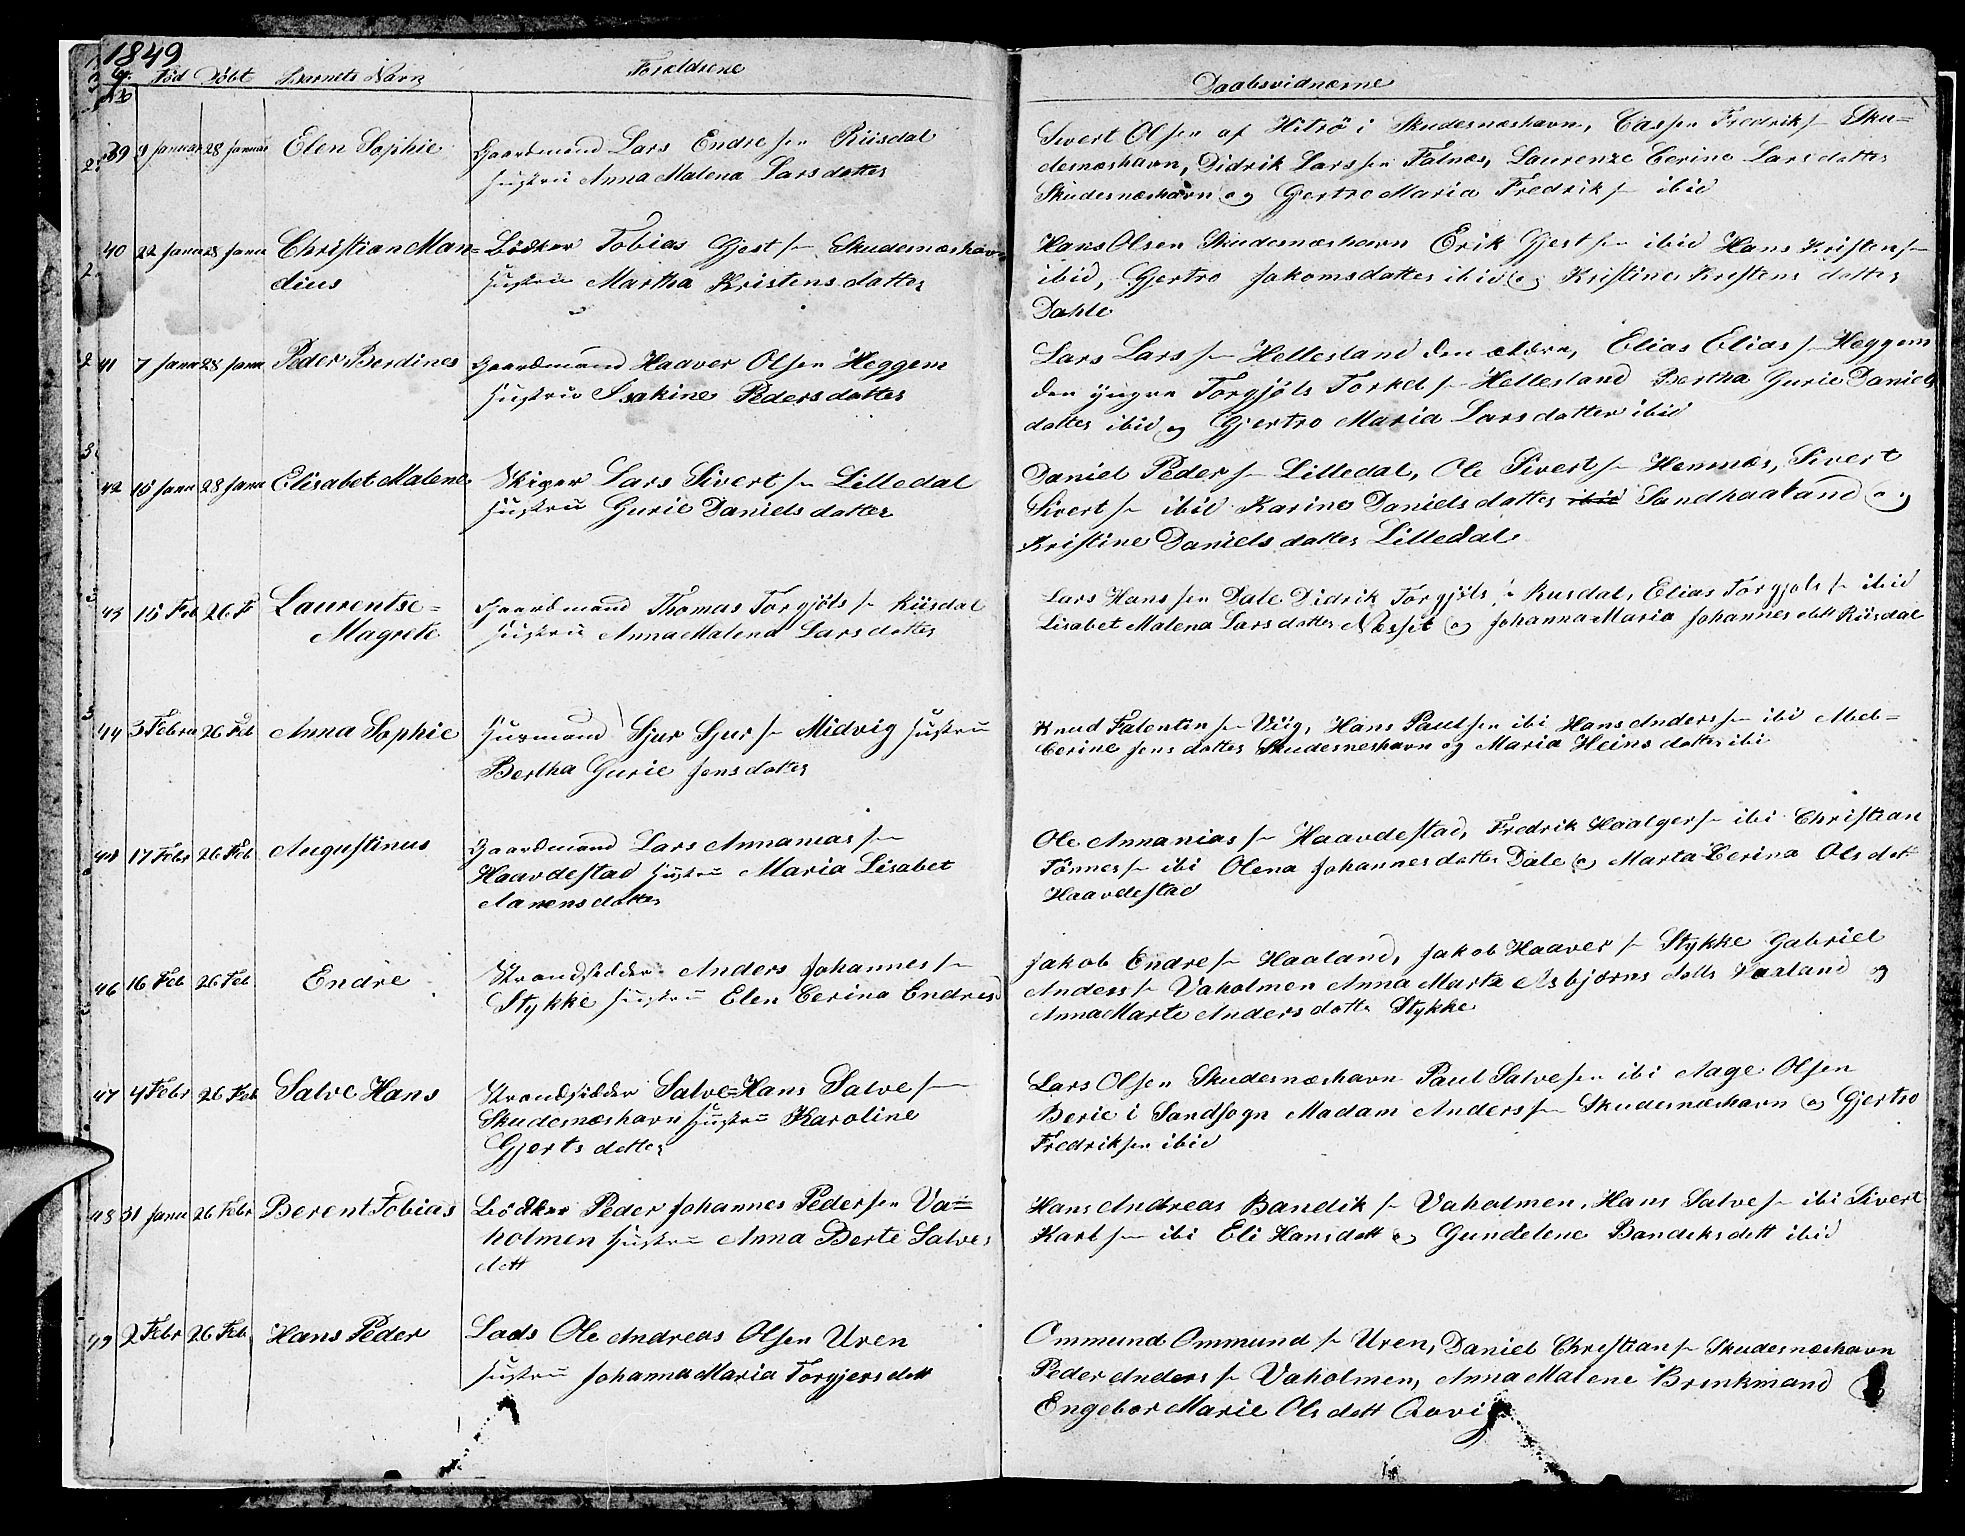 1849
Fød Døbt Barnets Navn Forældrene
Daabsvidnerne
39 9 Januar 28 Januar Elen Sophie Gaardmand Lars Endresen Riisdal
Hustru Anna Malena Larsdatter
Sivert Olsen af Hitrö i Skudesnæshavn, Cassen Fredriks– Sku=
desnæshavn, Didrik Larssen Falnæs, Laurenze Cerine Larsdatter
Skudesnæshavn og Gjertro Maria Fredriks– ibid
40 22 Janu 28 Janu Christian Man= Bödker Tobias Gjests– Skudesnæshavn
dius Hustru Martha Kristensdatter
Hans Olsen Skudesnæshavn Erik Gjestsen ibid Hans Kristens–
ibid, Gjertro Jakomsdatter ibid og Kristine Kristensdatter
Dahle
41 7 Janu 28 Janu Peder Berdines Gaardmand Haaver Olsen Heggem
Hustru Isakine Pedersdatter
Lars Lars– Hellesland den ældre, Elias Elias– Heggem
den yngre Torgjöls Torkels– Hellesland Bertha Gurie Daniels
datter ibid og Gjertro Maria Larsdatter ibid
42 15 Janu 28 Janu Elisabet Malene Lars Siverts– Lilledal
Hustru Gurie Danielsdatter
Daniel Peders– Lilledal, Ole Siverts– Hemnæs, Sivert
Siverts– ibid Karine Danielsdatter ibid Sandhaaland og
Kristine Danielsdatter Lilledal
43 15 Feb 26 F Laurentse= Gaardmand Thomas Torgjöls– Riisdal
Magrete Hustru Anna Malena Larsdatter
Lars Hanssen Dale Didrik Torgjöls– Rusdal, Elias Torgjols– ibid
Lisabet Malena Larsdatter Næsset og Johanna Maria Johannesdatt Riisdal
44 3 Febru 26 Feb Anna Sophie Husmand Sjur Sjurs– Midvig Hustru
Bertha Gurie Jensdatter
Knud Falentins– Viig, Hans Paulsen ibi Hans Anders– ibi Mel=
Cerine Jensdatter Skudesneshavn og Maria Heinsdatter ibi
17 Febr 26 Feb Augustinus Gaardmand Lars Annanias–
Haavdestad Hustru Maria Lisabet
Aanensdatter
Ole Annanias– Haavdestad, Fredrik Haalgers– ibi Christian
Tönnes– ibi Olena Johannesdatter Dale og Marta Cerina Olsdatt
Haavdestad
46 16 Feb 26 Feb Endre Strandsidder Anders Johannes–
Stykke Hustru Elen Cerina Endresd
Jakob Endre– Haaland, Jakob Haaver– Stykke Gabriel
Anders– Vaholmen Anna Marta Asbjörnsdatte Vaaland og
Anna Marte Andersdatte Stykke
47 4 Febr 26 Feb Salve Hans Strandsidder Salve=Hans Salve–
Skudesnæshavn Hustru Karoline
Gjertsdatter
Lars Olsen Skudesnæshavn Paul Salvesen ibi Aage Olsen
Berie i Sandsogn Madam Anders– Skudesnæshavn og Gjertro
Fredriksen ibid
48 31 Janu 26 Febr Berent Tobias Bödker Peder Johannes Pedersen Va=
holmen Hustru Anna Berte Salves
datt
Hans Andreas Bandik– Vaholmen, Hans Salve– ibi Sivert
Karl– ibi Eli Hansdatt og Gundelene Bandeksdatt ibid
49 2 Febr 26 Feb Hans Peder Lods Ole Andreas Olsen Uren
Hustru Johanna Maria Torgjersdatt
Ommund Ommund– Uren, Daniel Christian– Skudesnæshavn
Peder Anders– Vaholmen, Anna Malene Brinkmand og
Engebor Marie Olsdatt